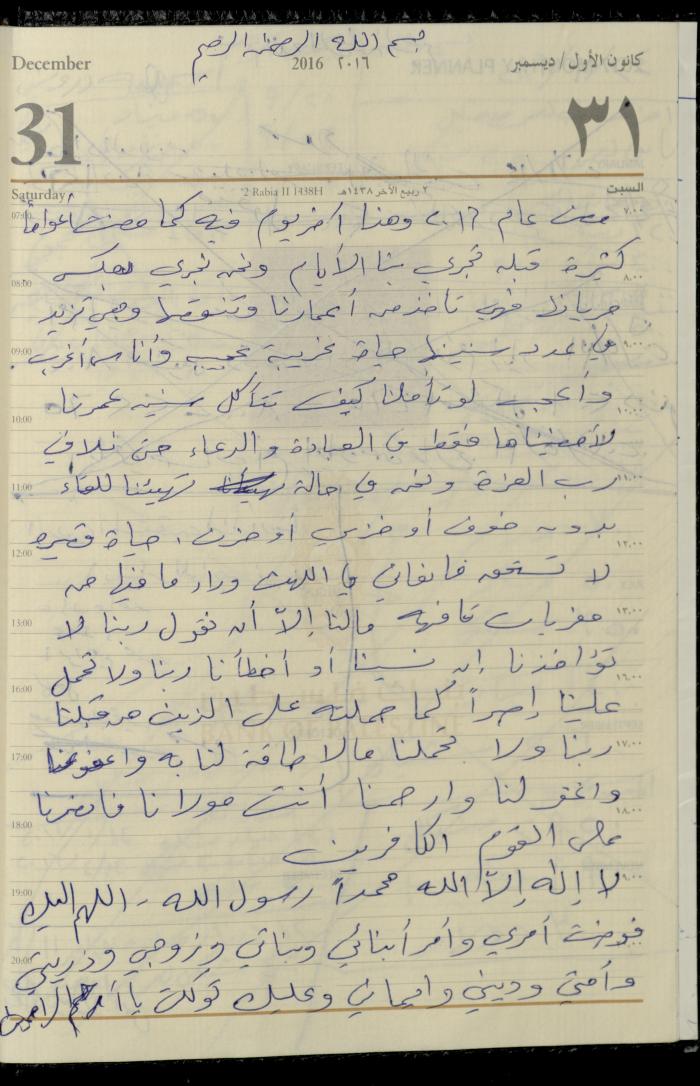 بسم الله الرحمن الرحيم
December 2016 ٢٠١٦ كانون الأول / ديسمبر
31 ٣١
Saturday 2 Rabia II 1438H ٢ ربيع الآخر ١٤٣٨هـ السبت
07:00 مضى عام ٢٠١٦ وهذا آخر يوم فيه كما مضت أعواماً ٧:٠٠
كثيرة قبله تجري بنا الأيام ونحن نجري بعكس
08:00 ٨:٠٠
جريانها فهي تأخذ من أعمارنا وتنقصها وهي تزيد
09:00 في عدد سنينها حياة غريبة عجيبة وأناس أغرب ٩:٠٠
وأعجب لو تأملنا كيف تتآكل سنين عمرنا
10:00 ١٠:٠٠
لأمضيناها فقط في العبادة والدعاء حتى نلاقي
11:00 رب العزة ونحن في حالة تهيئنا للقاء ١١:٠٠
بدون خوف أو خزي أو حزن، حياة قصيره
12:00 ١٢:٠٠
لا تستحق فانفاني في اللهث وراء ما فيها من
13:00 مغريات تافهه مالنا إلاّ أن نقول ربنا لا ١٣:٠٠
تؤاخذنا إن نسينا أو أخطأنا ربنا ولا تحمل
16:00 ١٦:٠٠
علينا إصراً كما حملته على الذين من قبلنا
17:00 ربنا ولا تحملنا مالا طاقة لنا به واعفوعنا ١٧:٠٠
واغفر لنا وارحمنا أنت مولانا فانصرنا
18:00 ١٨:٠٠
على القوم الكافرين
19:00 لا إله إلاّ الله محمداً رسول الله - اللهم اليك ١٩:٠٠
فوضت أمري وأمر أبنائي وبناتي وزوجي وذريتي
20:00
وأمتي وديني وايماني وعليك توكلت يا أرحم الراحمين